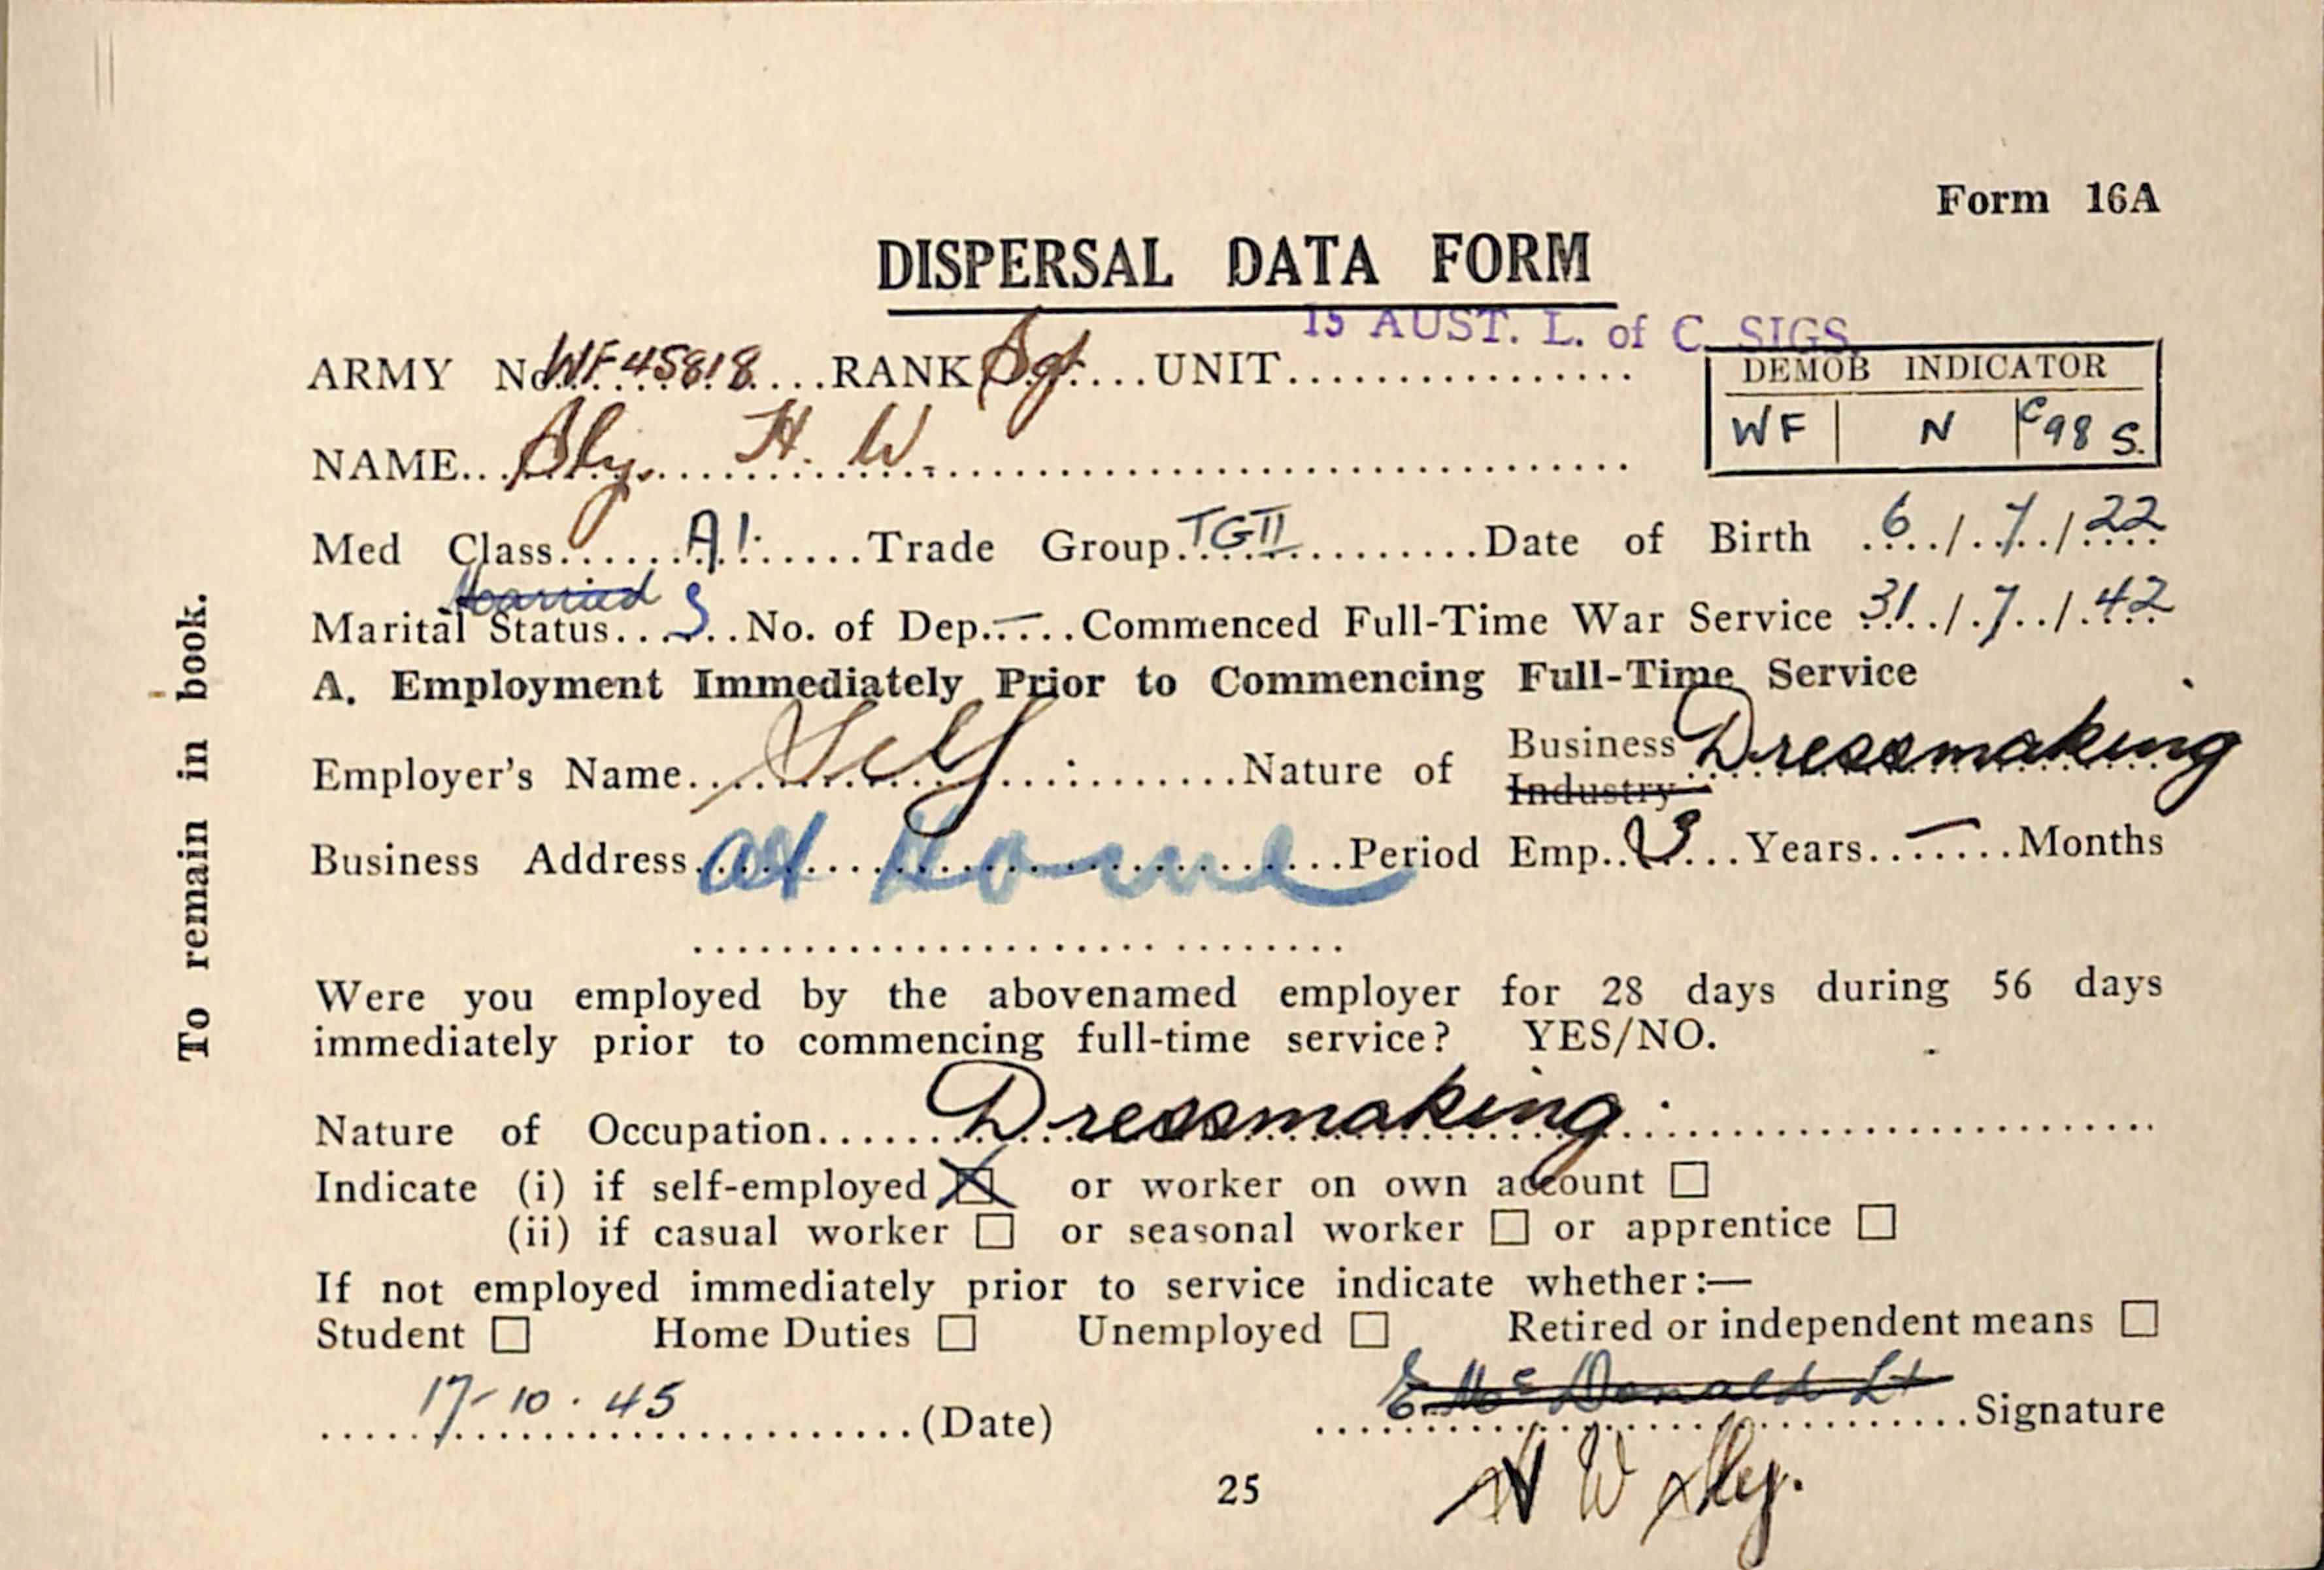 Form 16A
DISPERSAL DATA FORM
15 AUST. L. of C. SIGS.
ARMY No. WF45818 RANK Sgt UNIT
DEMOB INDICATOR
WF N C98 S.
NAME Sly. H. W.
Med Class A1. Trade Group TGII Date of Birth 6/7/22
Married
Marital Status S No. of Dep. — Commenced Full-Time War Service 31/7/42
A. Employment Immediately Prior to Commencing Full-Time Service
Employer's Name Self Nature of Business Industry Dressmaking
Business Address at Home Period Emp. 3 Years — Months
Were you employed by the abovenamed employer for 28 days during 56 days
immediately prior to commencing full-time service? YES/NO.
Nature of Occupation Dressmaking
Indicate (i) if self-employed ☒ or worker on own account ☐
(ii) if casual worker ☐ or seasonal worker ☐ or apprentice ☐
If not employed immediately prior to service indicate whether:—
Student ☐ Home Duties ☐ Unemployed ☐ Retired or independent means ☐
17-10.45 (Date) E. McDonald Lt Signature
H W Sly.
25
To remain in book.